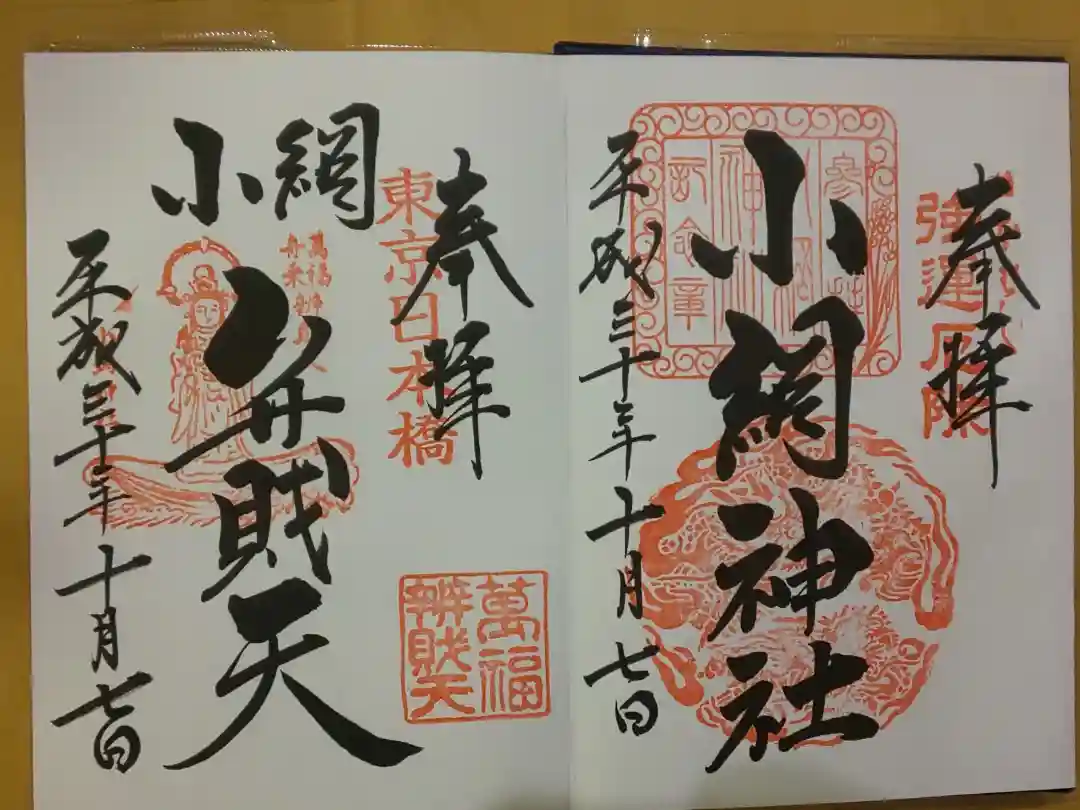 奉拝
強運厄除
小網神社
参拝
記念章
平成三十年十月七日
奉拝
東京日本橋
萬福
辨財天
小網
弁財天
萬福
舟乗
平成三十年十月七日